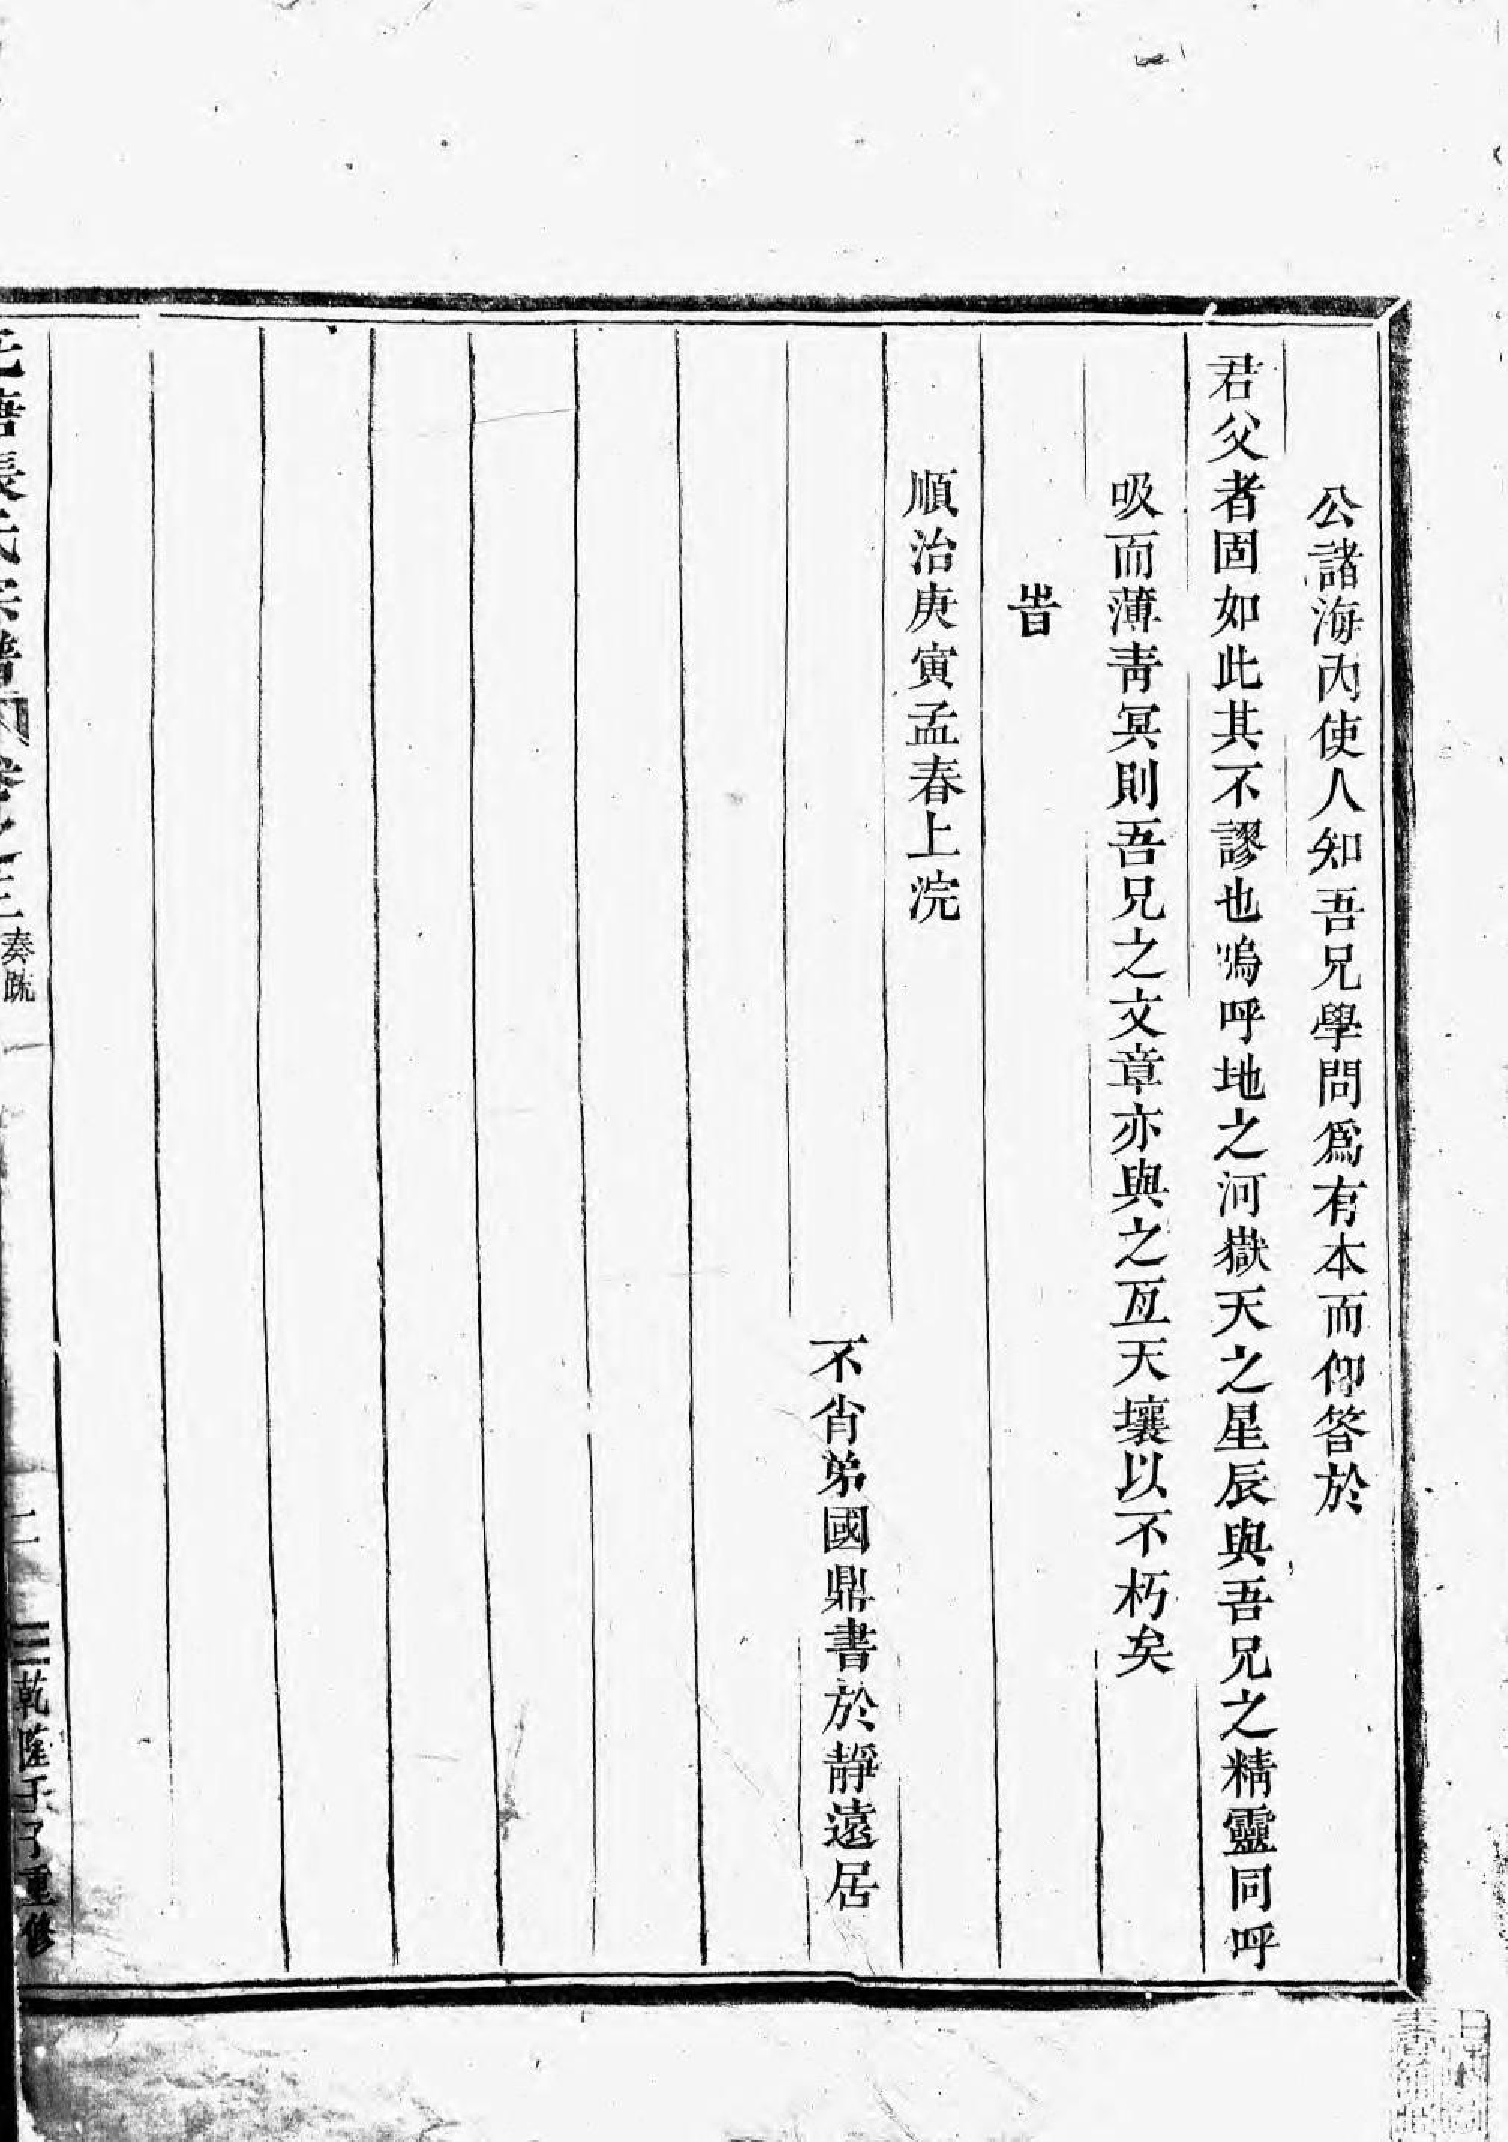 公諸海内使人知吾兄學問爲有本而仰答於
君父者固如此其不謬也嗚呼地之河嶽天之星辰與吾兄之精靈同呼
吸而薄靑冥則吾兄之文章亦與之亙天壤以不朽矣
旹
順治庚寅孟春上浣
不肖弟國鼎書於靜遠居
張氏宗譜 卷之三 奏疏 一
二 乾隆壬子重修